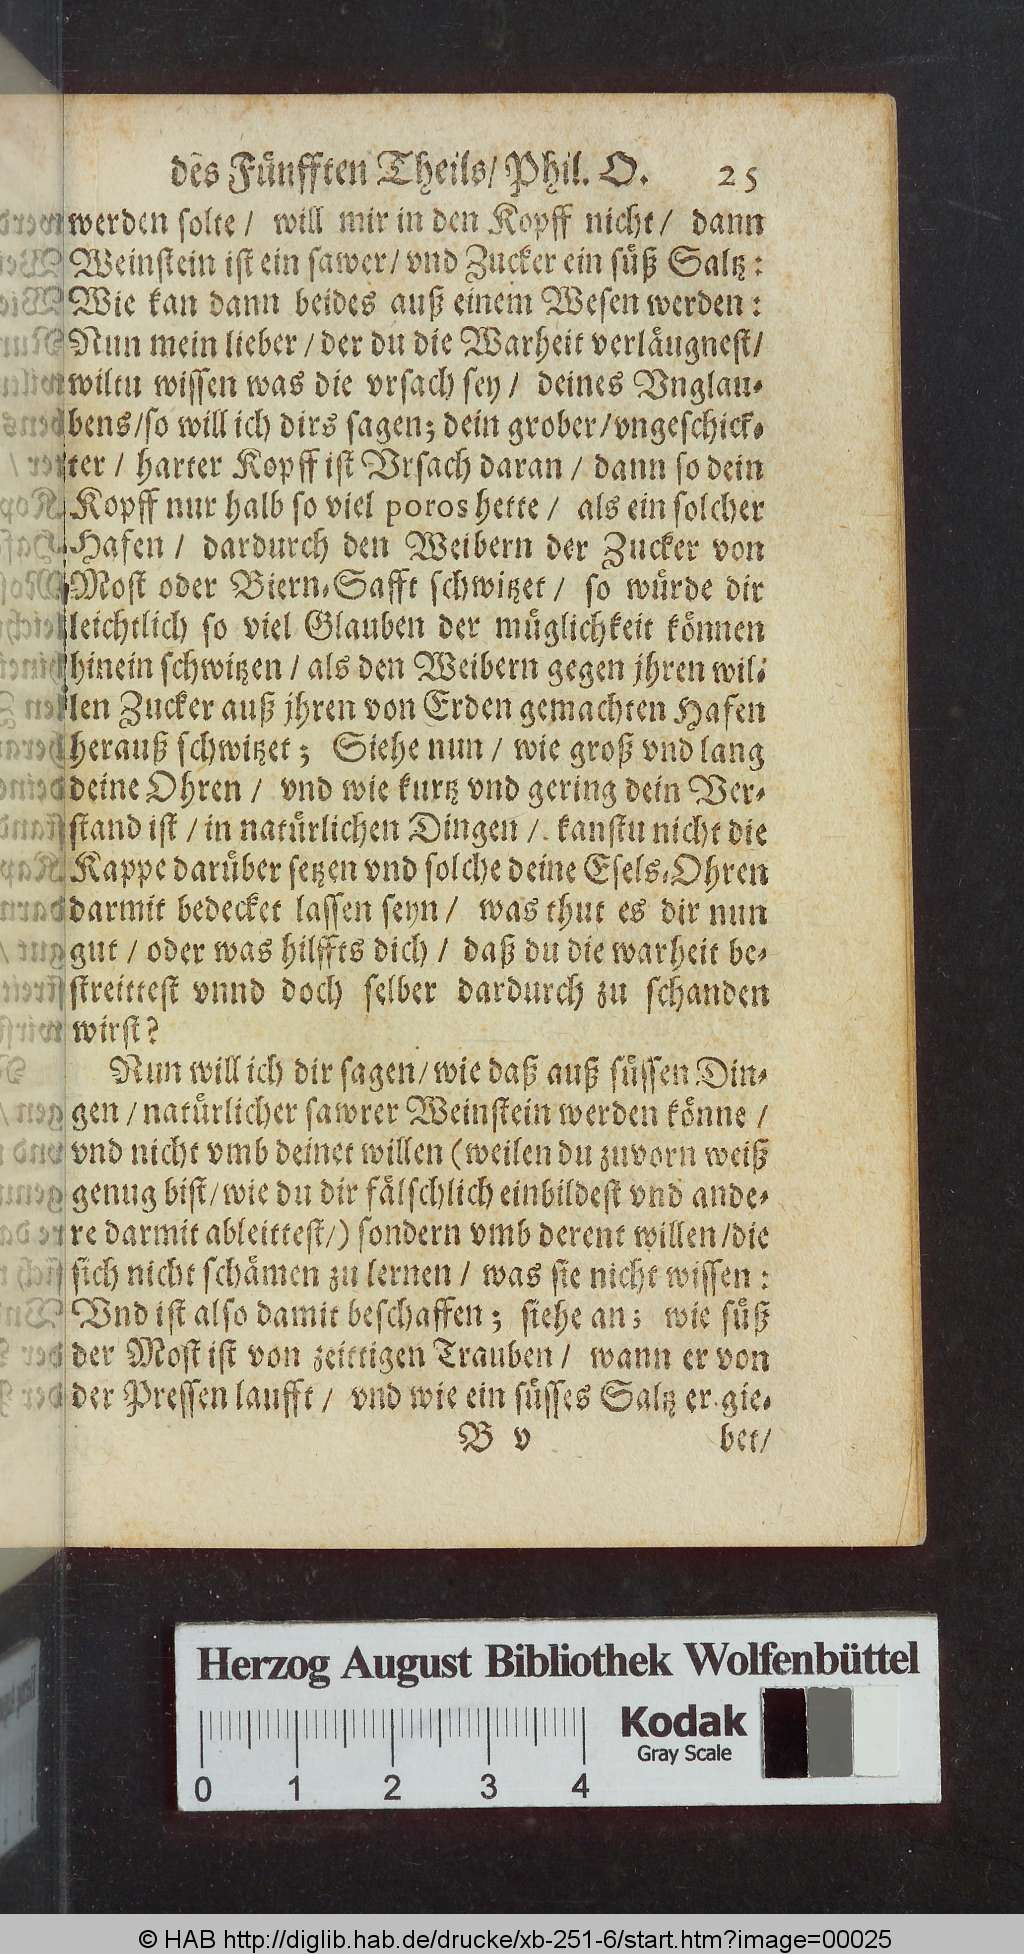 des Fünfften Theils/ Phil. O. 25
werden solte / will mir in den Kopff nicht / dann
Weinstein ist ein sawer / vnd Zucker ein süß Saltz :
Wie kan dann beides auß einem Wesen werden :
Nun mein lieber / der du die Warheit verläugnest /
wiltu wissen was die vrsach sey / deines Vnglau-
bens / so will ich dirs sagen; dein grober / vngeschick-
ter / harter Kopff ist Vrsach daran / dann so dein
Kopff nur halb so viel poros hette / als ein solcher
Hafen / dardurch den Weibern der Zucker von
Most oder Biern-Safft schwitzet / so würde dir
leichtlich so viel Glauben der müglichkeit können
hinein schwitzen / als den Weibern gegen jhren wil-
len Zucker auß jhren von Erden gemachten Hafen
herauß schwitzet ; Siehe nun / wie groß vnd lang
deine Ohren / vnd wie kurtz vnd gering dein Ver-
stand ist / in natürlichen Dingen / kanstu nicht die
Kappe darüber setzen vnd solche deine Esels-Ohren
darmit bedecket lassen seyn / was thut es dir nun
gut / oder was hilffts dich / daß du die warheit be-
streittest vnnd doch selber dardurch zu schanden
wirst?
Nun will ich dir sagen / wie daß auß süssen Din-
gen / natürlicher sawrer Weinstein werden könne /
vnd nicht vmb deinet willen (weilen du zuvorn weiß
genug bist / wie du dir fälschlich einbildest vnd ande-
re darmit ableittest /) sondern vmb derent willen / die
sich nicht schämen zu lernen / was sie nicht wissen :
Vnd ist also damit beschaffen ; siehe an ; wie süß
der Most ist von zeittigen Trauben / wann er von
der Pressen laufft / vnd wie ein süsses Saltz er gie-
B v bet /
Herzog August Bibliothek Wolfenbüttel
Kodak
Gray Scale
0 1 2 3 4
© HAB http://diglib.hab.de/drucke/xb-251-6/start.htm?image=00025